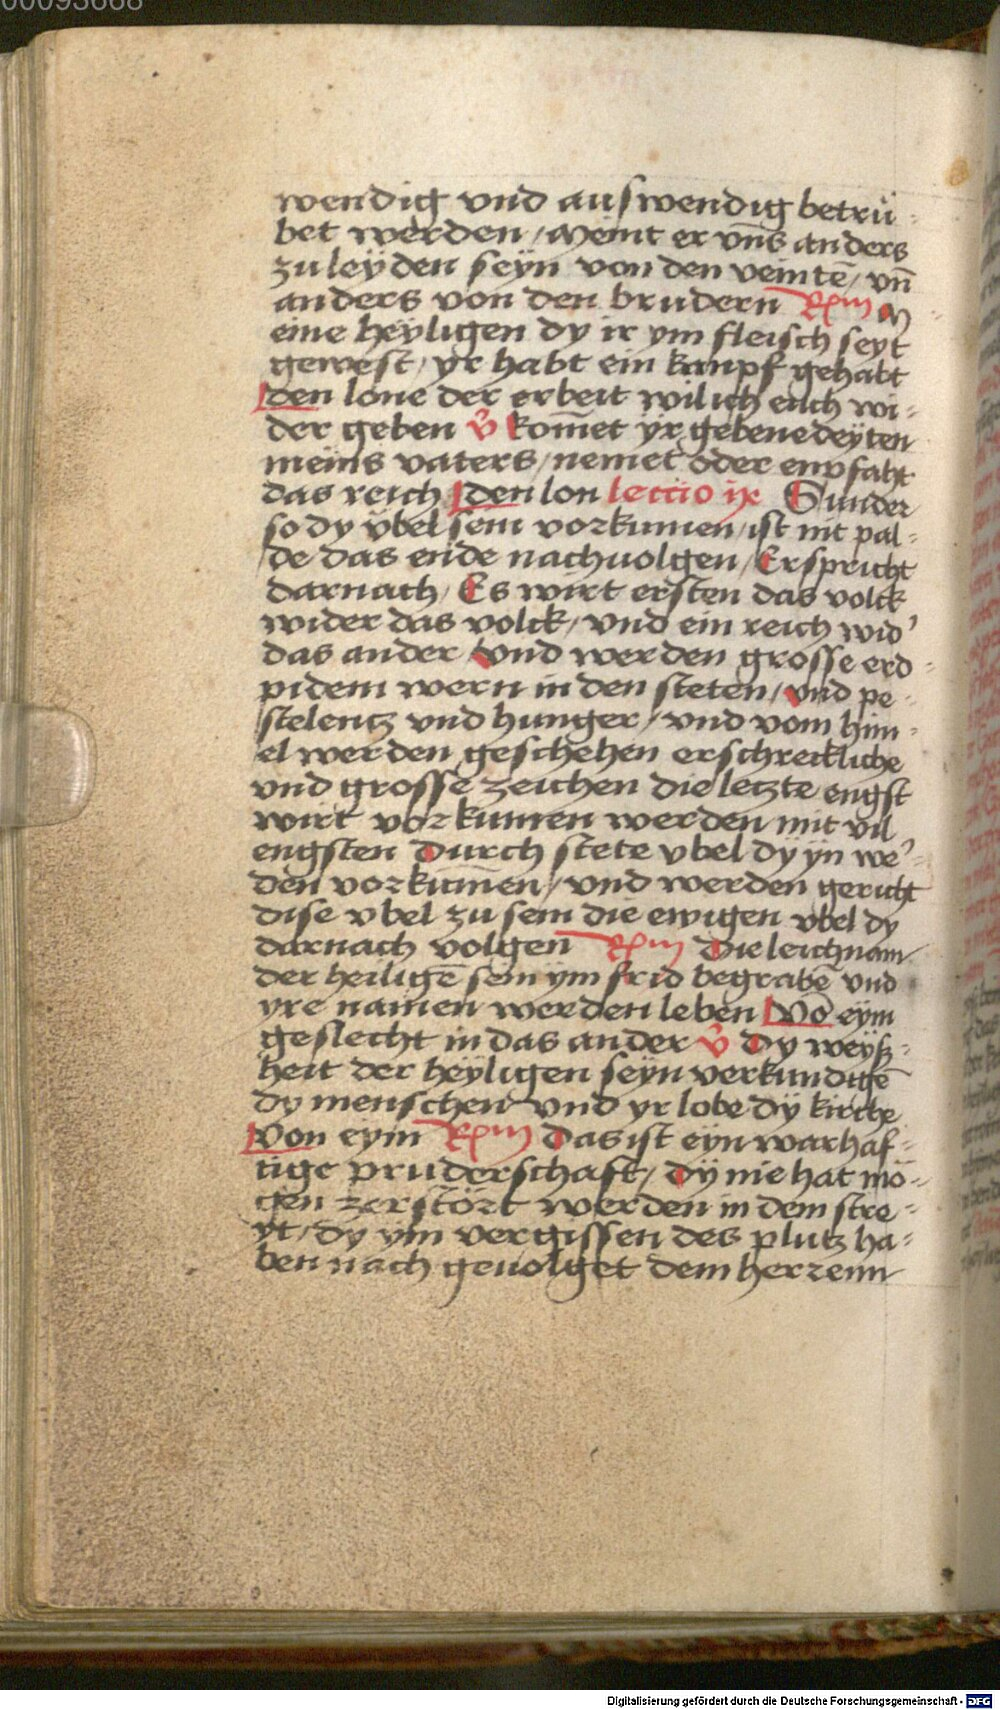 00093668
wendig vnd auswendig betrü-
bet werden / Meint er vn̄s anders
zu leÿden seÿn von den veintē / vn̄
anders von den brudern Rm M
eine heÿligen dy ir ym fleisch seyt
gewest / yr habt ein kanpf gehabt
den lone der erbeit wil ich euch wi-
der geben v̊ kom̄et ÿr gebenedeÿten
meins vaters / nemet oder enpfaht
das reich den lon lectio ix Sunder
so dy ÿbel sein vorkumen / ist nit pal-
de das ende nachuolgen / Er spricht
darnach / Es wirt ersten das volck
wider das volck / vnd ein reich wid'
das ander / vnd werden grosse erd-
pidem wern in den steten / vnd pe-
stelentz vnd hunger / vnd vom him-
el werden geschehen erschreckliche
vnd grosse zeichen die letzte engst
wirt vorkumen werden mit vil
engsten durch stete vbel dÿ ÿn we'-
den vorkum̄en / vnd werden gericht
dise vbel zu sein die ewigen vbel dy
darnach volgen Rm Die leichnam
der heiligē sein ym frid begrabē vnd
yre namen werden leben Vō eym
geslecht in das ander v̊ Dy weÿß-
heit der heÿligen seÿn verkundigē
dy menschen vnd yr lobe dÿ kirche
Von eym Rm Das ist eyn warhaf-
tige pruderschaft / dÿ nie hat mö-
gen zerstört werden in dem stre-
yt / dy ym vergissen des plutz ha-
ben nach geuolget dem herrenn
Digitalisierung gefördert durch die Deutsche Forschungsgemeinschaft - DFG